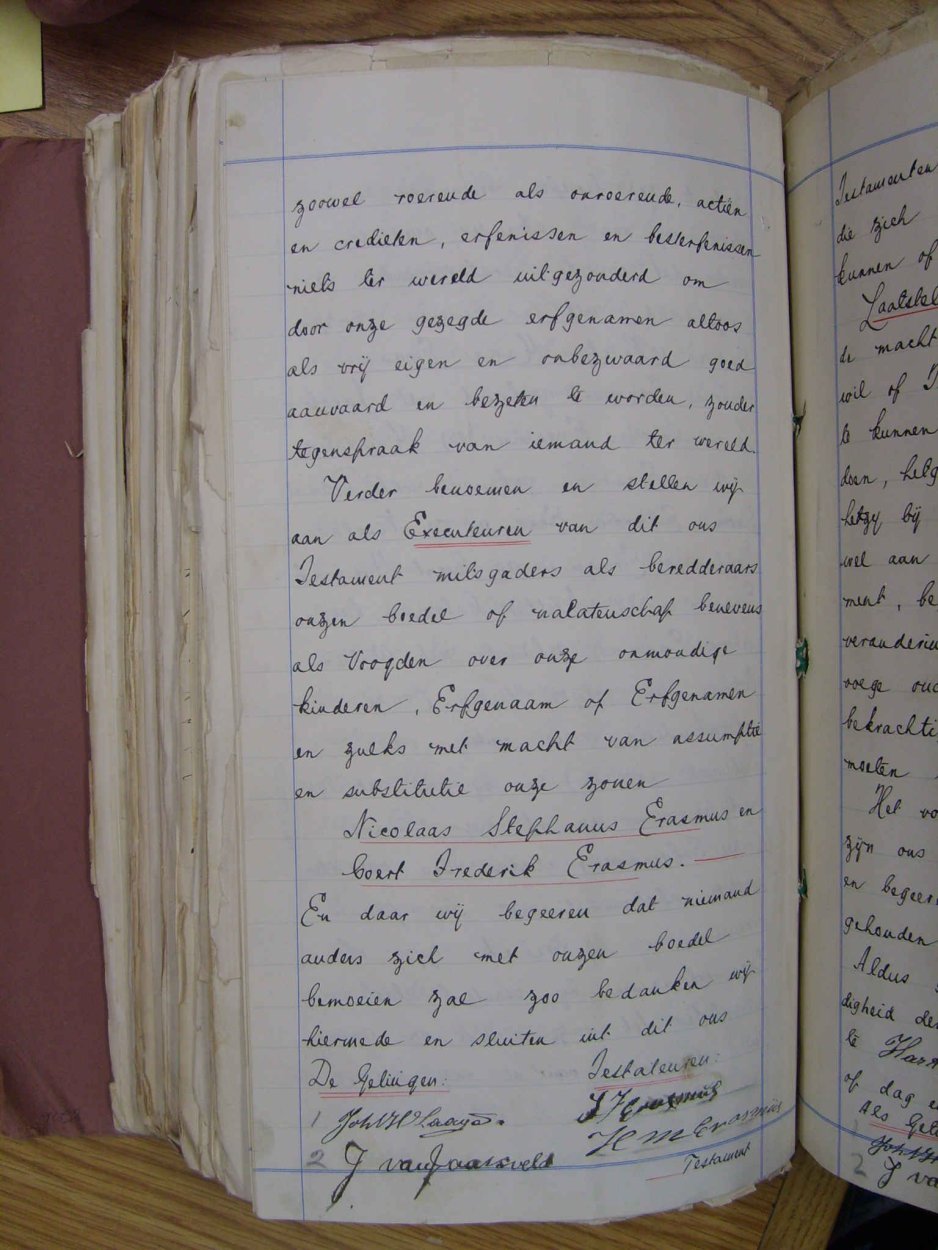 zoowel roerende als onroerende, actiën
en credieten, erfenissen en besterfenissen
niets ter wereld uitgezonderd om
door onze gezegde erfgenamen altoos
als vrij eigen en onbezwaard goed
aanvaard en bezeten te worden, zonder
tegenspraak van iemand ter wereld.
Verder benoemen en stellen wij
aan als Executeuren van dit ons
Testament mitsgaders als beredderaars
onzen boedel of nalatenschap benevens
als Voogden over onze onmondige
kinderen, Erfgenaam of Erfgenamen
en zulks met macht van assumptie
en substitutie onze zonen
Nicolaas Stephanus Erasmus en
Coert Frederik Erasmus.
En daar wij begeeren dat niemand
anders zich met onzen boedel
bemoeien zal zoo bedanken wij
hiermede en sluiten uit dit ons
De Getuigen: Testateuren:
1
Erasmus
2 J van Jaarsveld H M Erasmus
Testament
Testamenten
die zich
kunnen of
Laatstel
de macht
wil of T
te kunnen
doen, hetg
hetzy bij
wel aan
ment, be
veranderin
voege oud
bekrachti
moeten
Het vo
zijn ons
en begeer
gehouden
Aldus
digheid der
te
of dag e
Als Get
2 J va